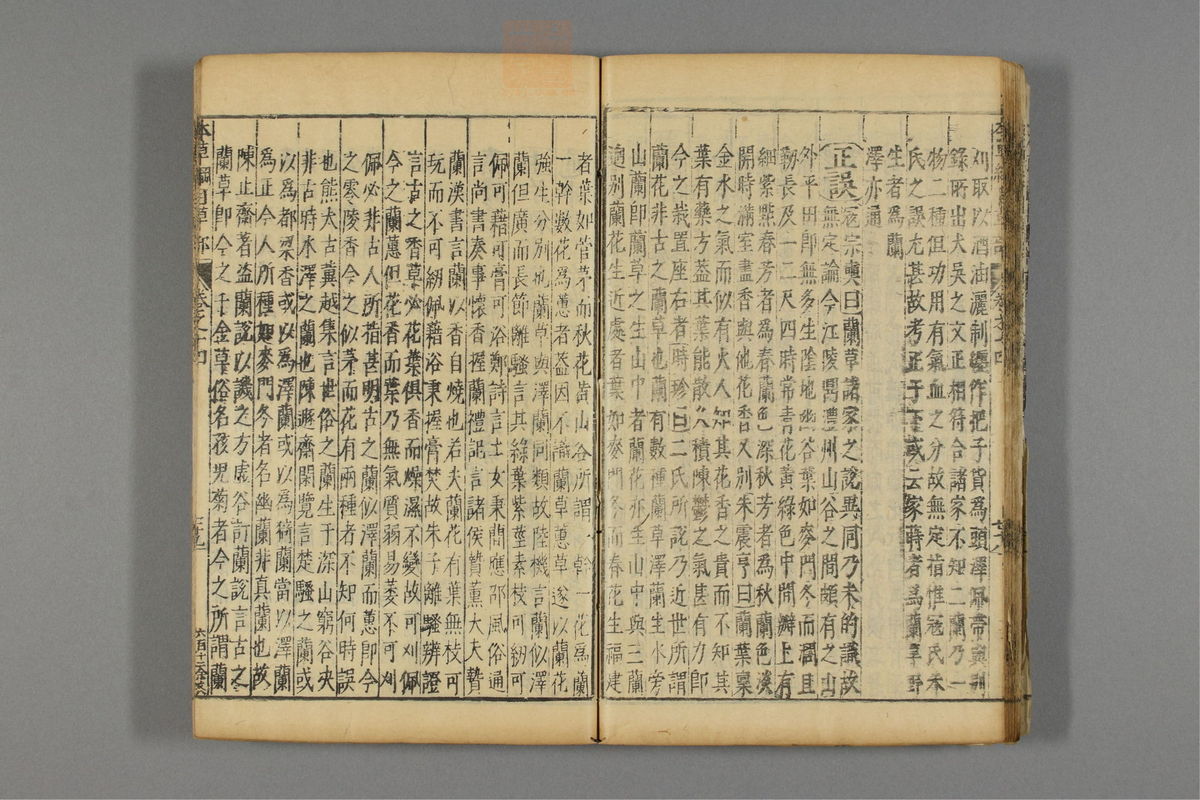 刈取以酒油灑制纏作把子貨爲頭澤佩帶與別
錄所出大吳之文正相符合諸家不知二蘭乃一
物二種但功用有氣血之分故無定指惟寇氏朱
氏之誤尤甚故考正于下或云家蒔者爲蘭草野
生者爲蘭
澤亦通
正誤寇宗奭曰蘭草諸家之說異同乃未的識故
無定論今江陵鼎澧州山谷之間頗有之山
外平田即無多生陰地幽谷葉如麥門冬而闊且
韌長及一二尺四時常青花黃綠色中間瓣上有
細紫點春芳者爲春蘭色深秋芳者爲秋蘭色淡
開時滿室盡香與他花香又別朱震亨曰蘭葉稟
金水之氣而似有火人知其花香之貴而不知其
葉有藥方蓋其葉能散久積陳鬱之氣甚有力即
今之栽置座右者時珍曰二氏所說乃近世所謂
蘭花非古之蘭草也蘭有數種蘭草澤蘭生水旁
山蘭即蘭草之生山中者蘭花亦生山中與三蘭
迥別蘭花生近處者葉如麥門冬而春花生福建
者葉如菅茅而秋花黃山谷所謂一幹一花爲蘭
一幹數花爲蕙者蓋因不識蘭草蕙草遂以蘭花
強生分別也蘭草與澤蘭同類故陸機言蘭似澤
蘭但廣而長節離騷言其綠葉紫莖素枝可紉可
佩可藉可膏可浴鄭詩言士女秉蕳應邵風俗通
言尚書奏事懷香握蘭禮記言諸侯贄薰大夫贄
蘭漢書言蘭以香自燒也若夫蘭花有葉無枝可
玩而不可紉佩藉浴秉握膏焚故朱子離騷辨證
言古之香草必花葉俱香而燥濕不變故可刈佩
今之蘭蕙但花香而葉乃無氣質弱易萎不可刈
佩必非古人所指甚明古之蘭似澤蘭而蕙即今
之零陵香今之似茅而花有兩種者不知何時誤
也熊太古冀越集言世俗之蘭生于深山窮谷決
非古時水澤之蘭也陳遯齋閑覽言楚騷之蘭或
以爲都梁香或以爲澤蘭或以爲猗蘭當以澤蘭
爲正今人所種如麥門冬者名幽蘭非真蘭也故
陳止齋著盜蘭說以譏之方虛谷訂蘭說言古之
蘭草即今之千金草俗名孩兒菊者今之所謂蘭
本草綱目草部 卷之十四